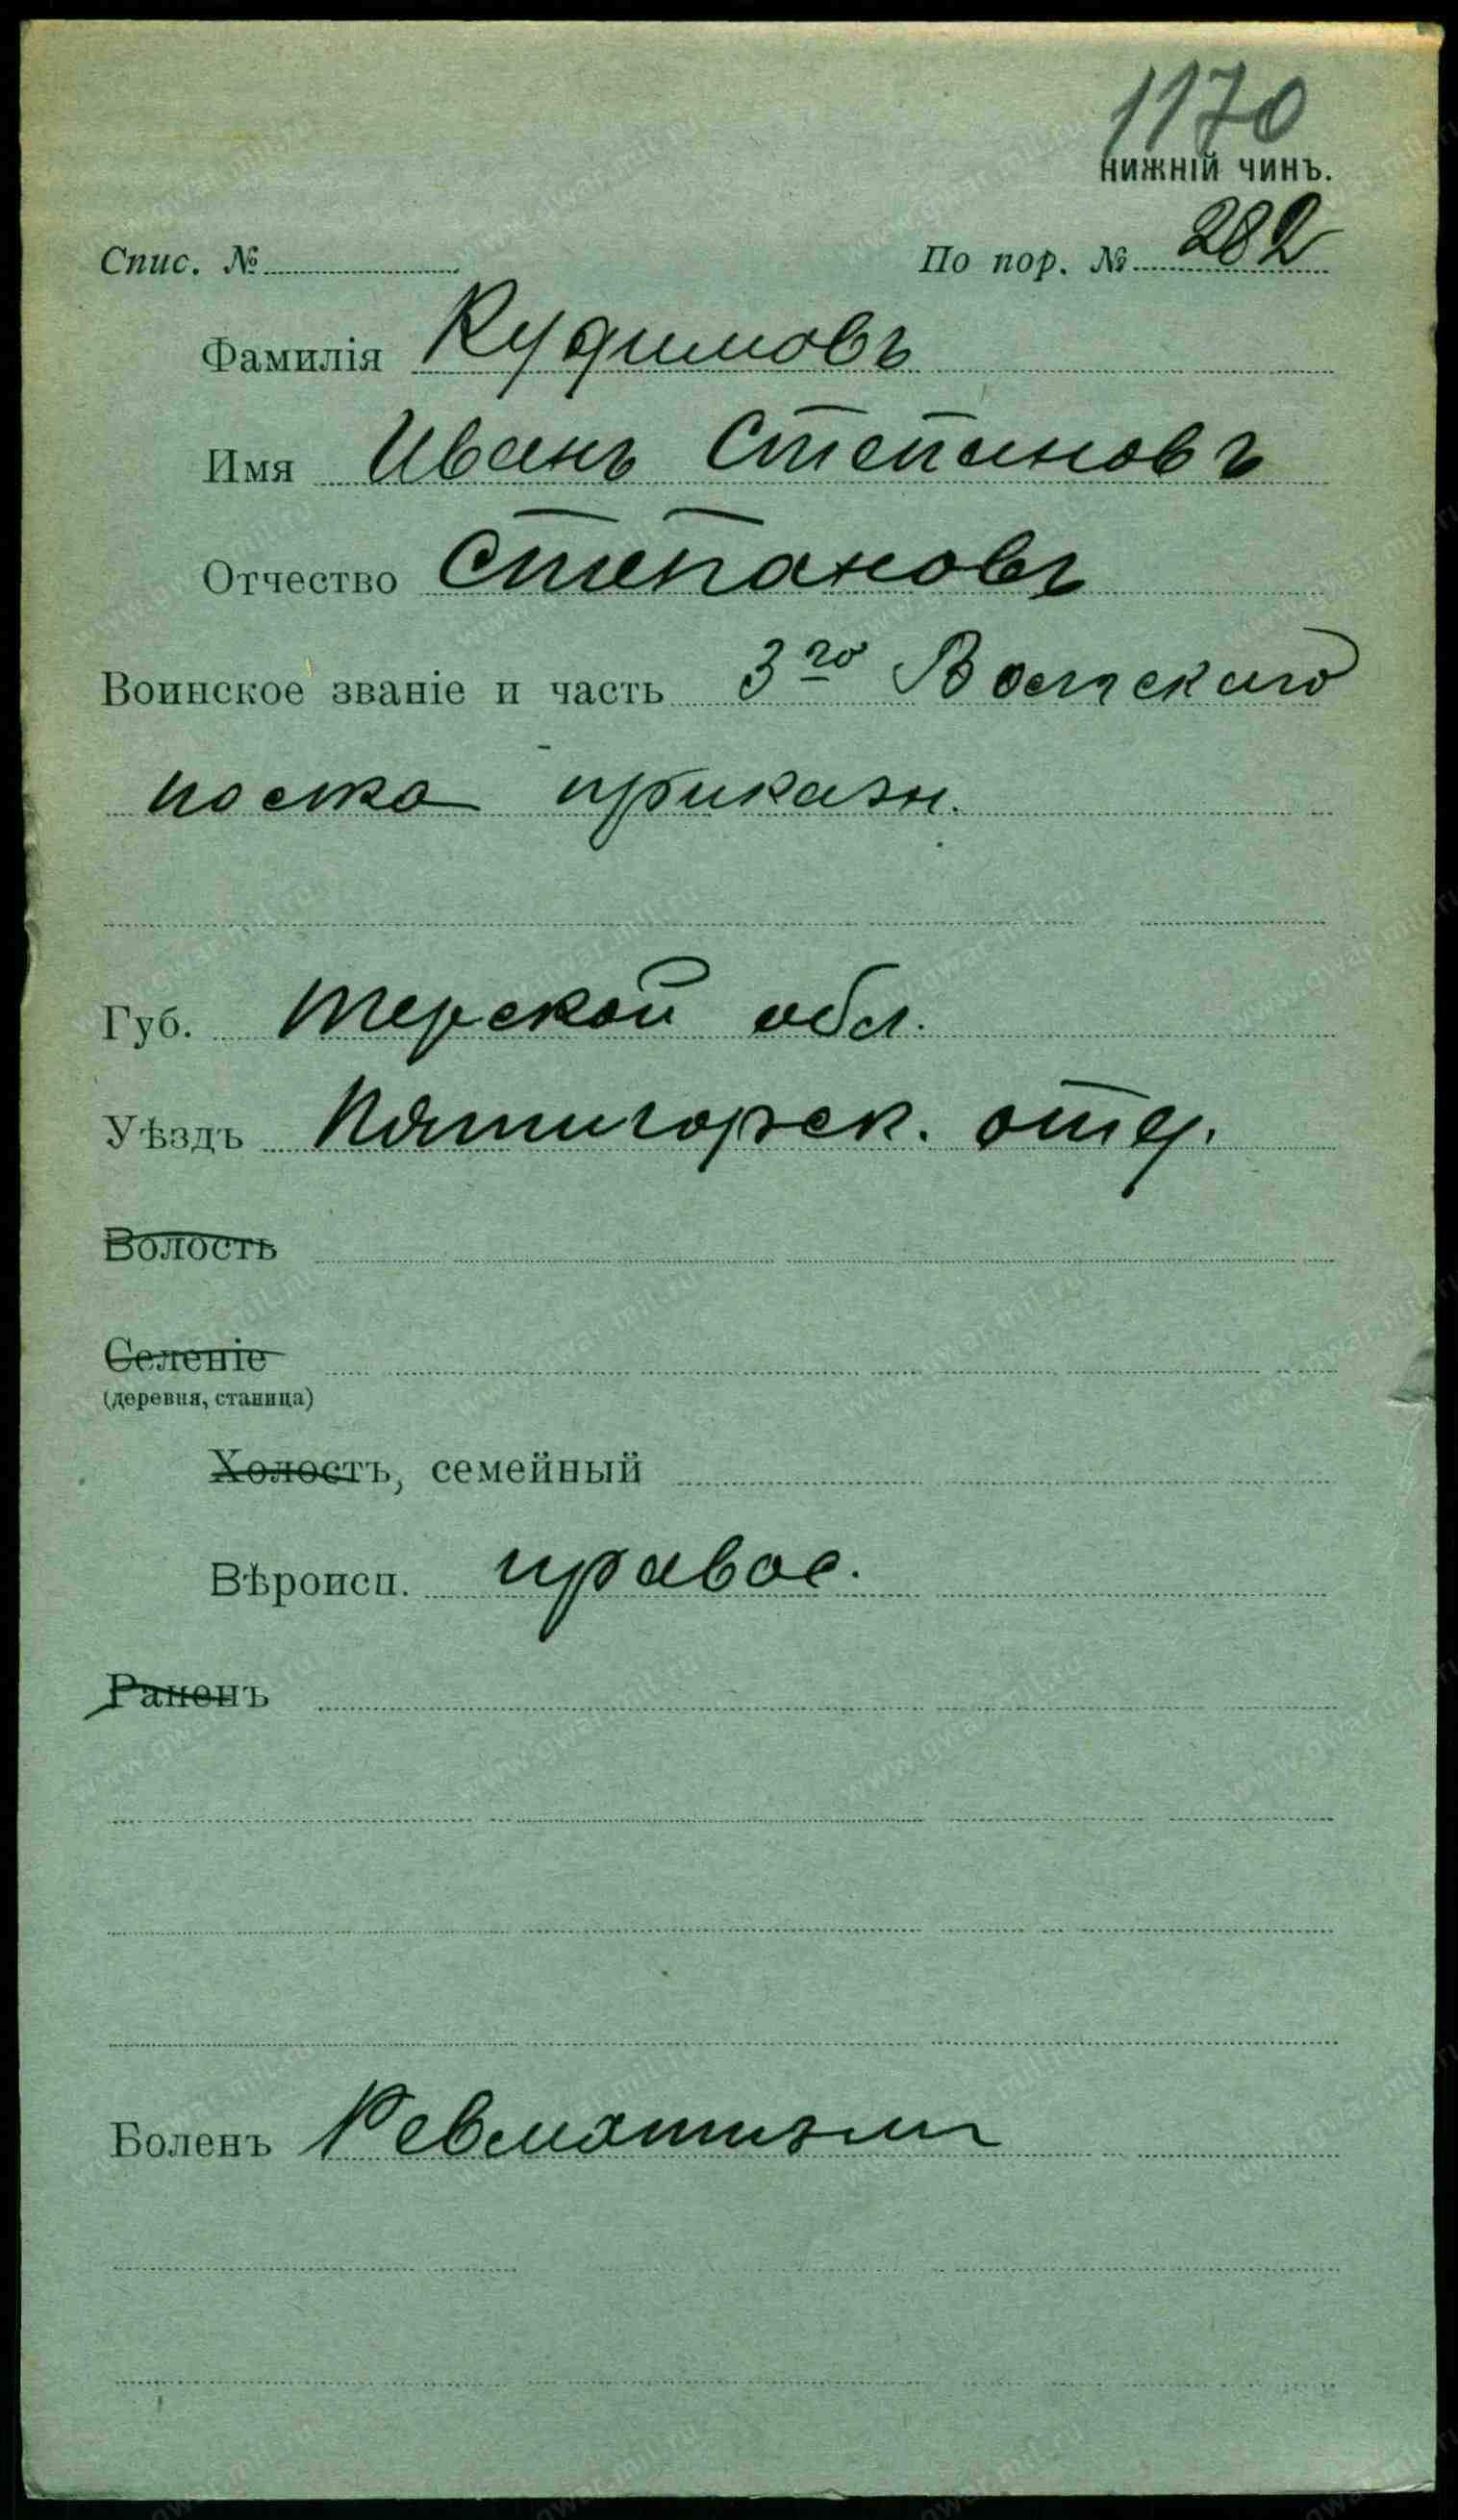 1170
НИЖНІЙ ЧИНЪ.
Спис. № По пор. № 282
Фамилія Кудимовъ
Имя Иванъ Степановъ
Отчество Степановъ
Воинское званіе и часть 3го Волгскаго
полка приказн.
Губ. Терской обл.
Уѣздъ Пятигорск. отд.
Волость
Селеніе
(деревня, станица)
Холостъ, семейный
Вѣроисп. правос.
Раненъ
Боленъ Ревматизм